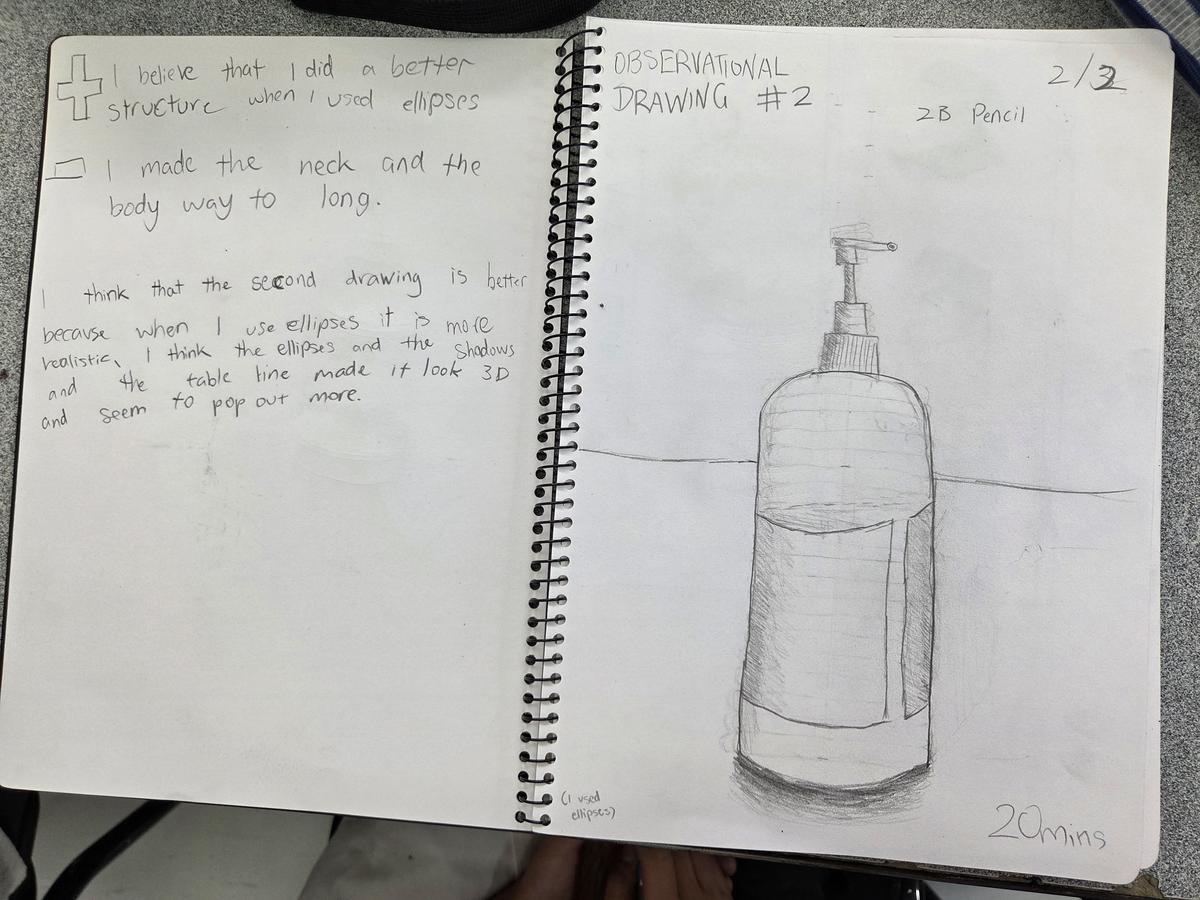 I believe that I did a better
structure when I used ellipses
I made the neck and the
body way to long.
I think that the second drawing is better
because when I use ellipses it is more
realistic, I think the ellipses and the shadows
and the table line made it look 3D
and seem to pop out more.
OBSERVATIONAL
DRAWING #2
2/2
2B Pencil
(I used
ellipses)
20mins